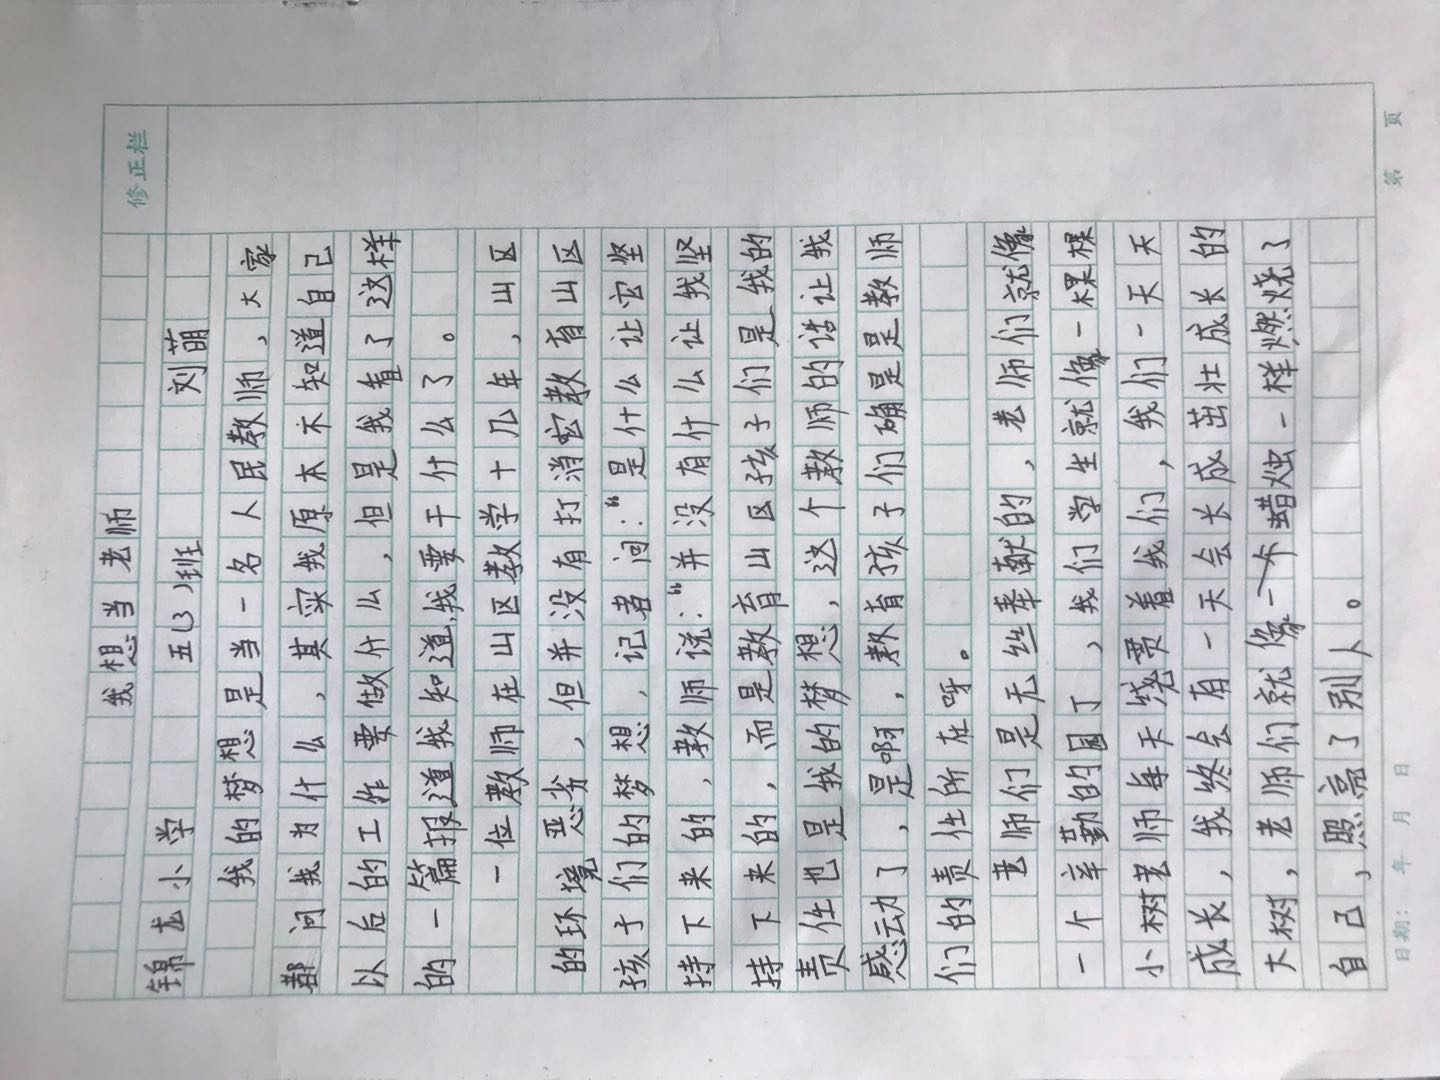 修正栏
我想当老师
锦龙小学 五(3)班 刘萌
我的梦想是当一名人民教师，大家
都问我为什么，其实我原本不知道自己
以后的工作要做什么，但是我看了这样
的一篇报道我知道，我要干什么了。
一位教师在山区教学十几年，山区
的环境恶劣，但并没有打消它教育山区
孩子们的梦想，记者问：“是什么让它坚
持下来的，教师说：“并没有什么让我坚
持下来的，而是教育山区孩子们是我的
责任也是我的梦想，这个教师的话让我
感动了，是啊，教育孩子们确是是教师
们的责任所在呀。
老师们是无丝奉献的，老师们就像
一个辛勤的园丁，我们学生就像一棵棵
小树老师每天浇贯着我们，我们一天天
成长，我终会有一天会长成茁壮成长的
大树，老师们就像一个蜡烛一样燃烧了
自己，照亮了别人。
日期： 年 月 日 第 页